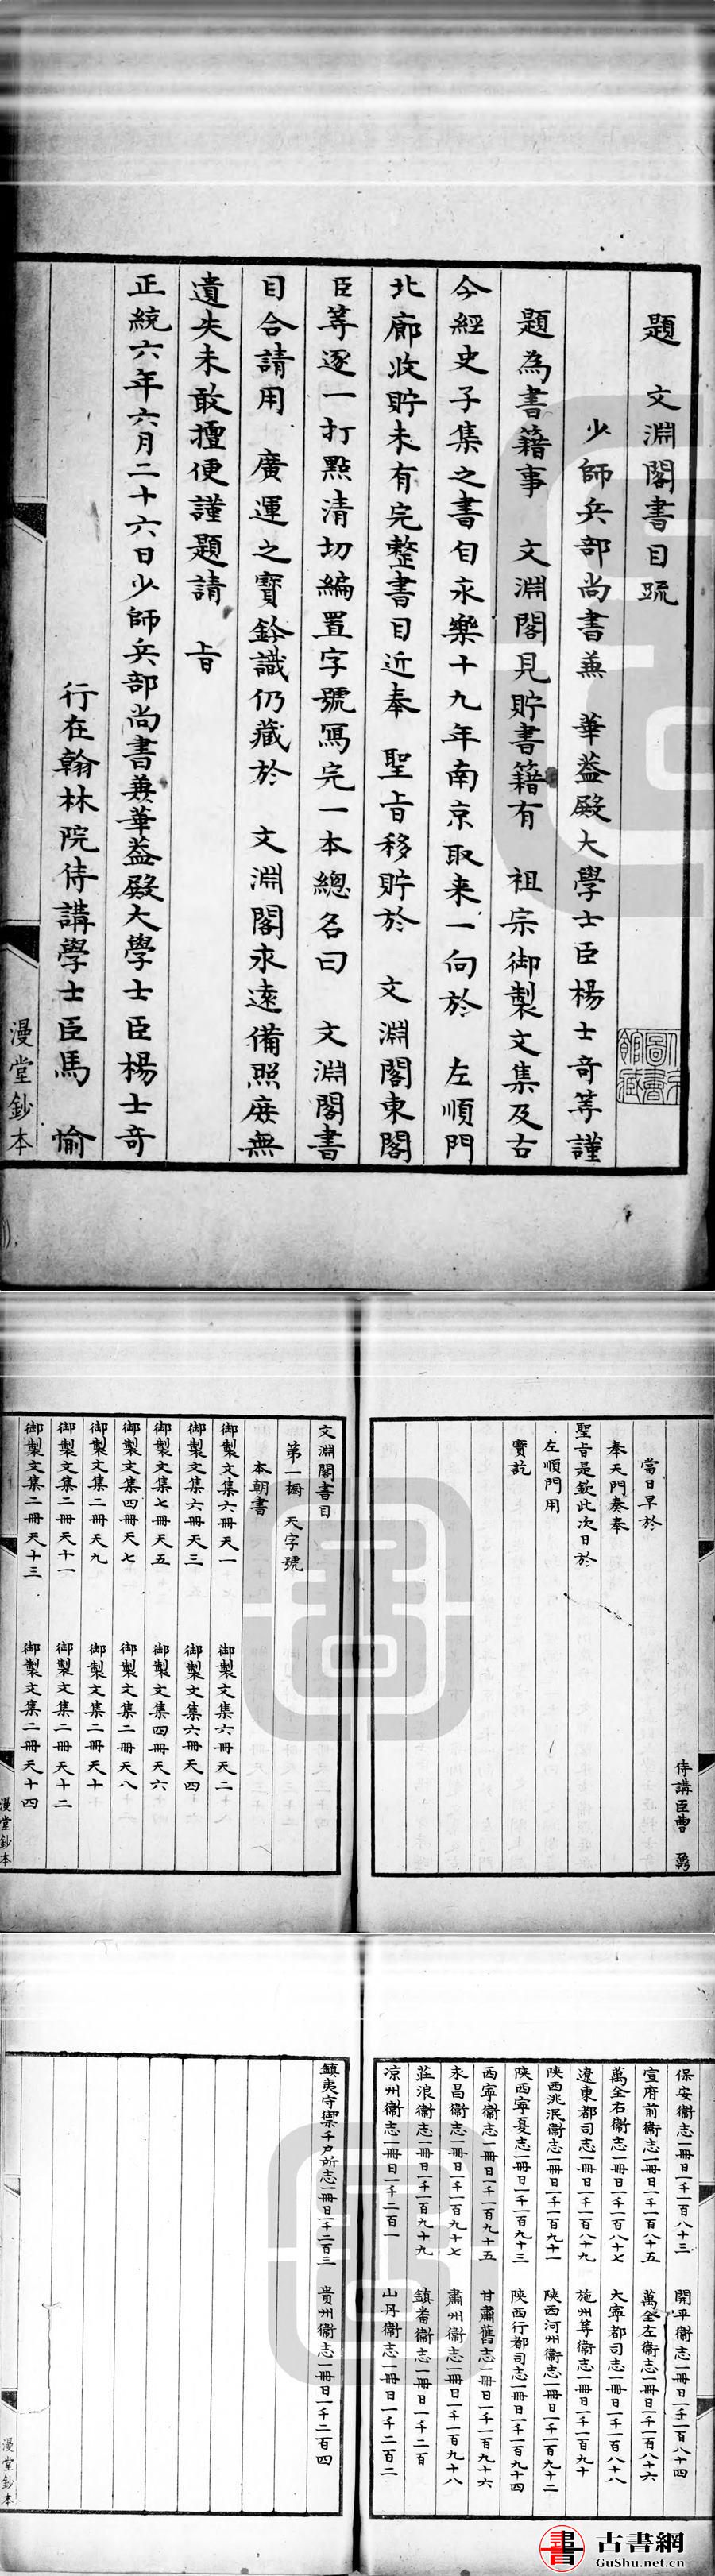 題 文淵閣書目疏
少師兵部尚書兼 華蓋殿大學士臣楊士奇等謹
題為書籍事 文淵閣見貯書籍有 祖宗御製文集及古
今經史子集之書自永樂十九年南京取来一向於 左順門
北廊收貯未有完整書目近奉 聖旨移貯於 文淵閣東閣
臣等逐一打點清切編置字號寫完一本總名曰 文淵閣書
目合請用 廣運之寶鈐識仍藏於 文淵閣永遠備照庶無
遺失未敢擅便謹題請 旨
正統六年六月二十六日少師兵部尚書兼華蓋殿大學士臣楊士奇
行在翰林院侍講學士臣馬 愉
漫堂鈔本
侍講臣曹 鼐
當日早於
奉天門奏奉
聖旨是欽此次日於
左順門用
寶訖
文淵閣書目
第一櫥 天字號
本朝書
御製文集六冊天一 御製文集六冊天二
御製文集六冊天三 御製文集六冊天四
御製文集七冊天五 御製文集四冊天六
御製文集四冊天七 御製文集二冊天八
御製文集二冊天九 御製文集二冊天十
御製文集二冊天十一 御製文集二冊天十二
御製文集二冊天十三 御製文集二冊天十四
漫堂鈔本
保安衞志一冊日一千一百八十三 開平衞志一冊日一千一百八十四
宣府前衞志一冊日一千一百八十五 萬全左衞志一冊日一千一百八十六
萬全右衞志一冊日一千一百八十七 大寧都司志一冊日一千一百八十八
遼東都司志一冊日一千一百八十九 施州等衞志一冊日一千一百九十
陕西洮泯衞志一冊日一千一百九十一 陕西河州衞志一冊日一千一百九十二
陕西寧夏志一冊日一千一百九十三 陕西行都司志一冊日一千一百九十四
西寧衞志一冊日一千一百九十五 甘肅舊志一冊日一千一百九十六
永昌衞志一冊日一千一百九十七 肅州衞志一冊日一千一百九十八
莊浪衞志一冊日一千一百九十九 鎮番衞志一冊日一千二百
凉州衞志一冊日一千二百一 山丹衞志一冊日一千二百二
鎮夷守禦千户所志一冊日一千二百三 貴州衞志一冊日一千二百四
漫堂鈔本
書
古書網
GuShu.net.cn